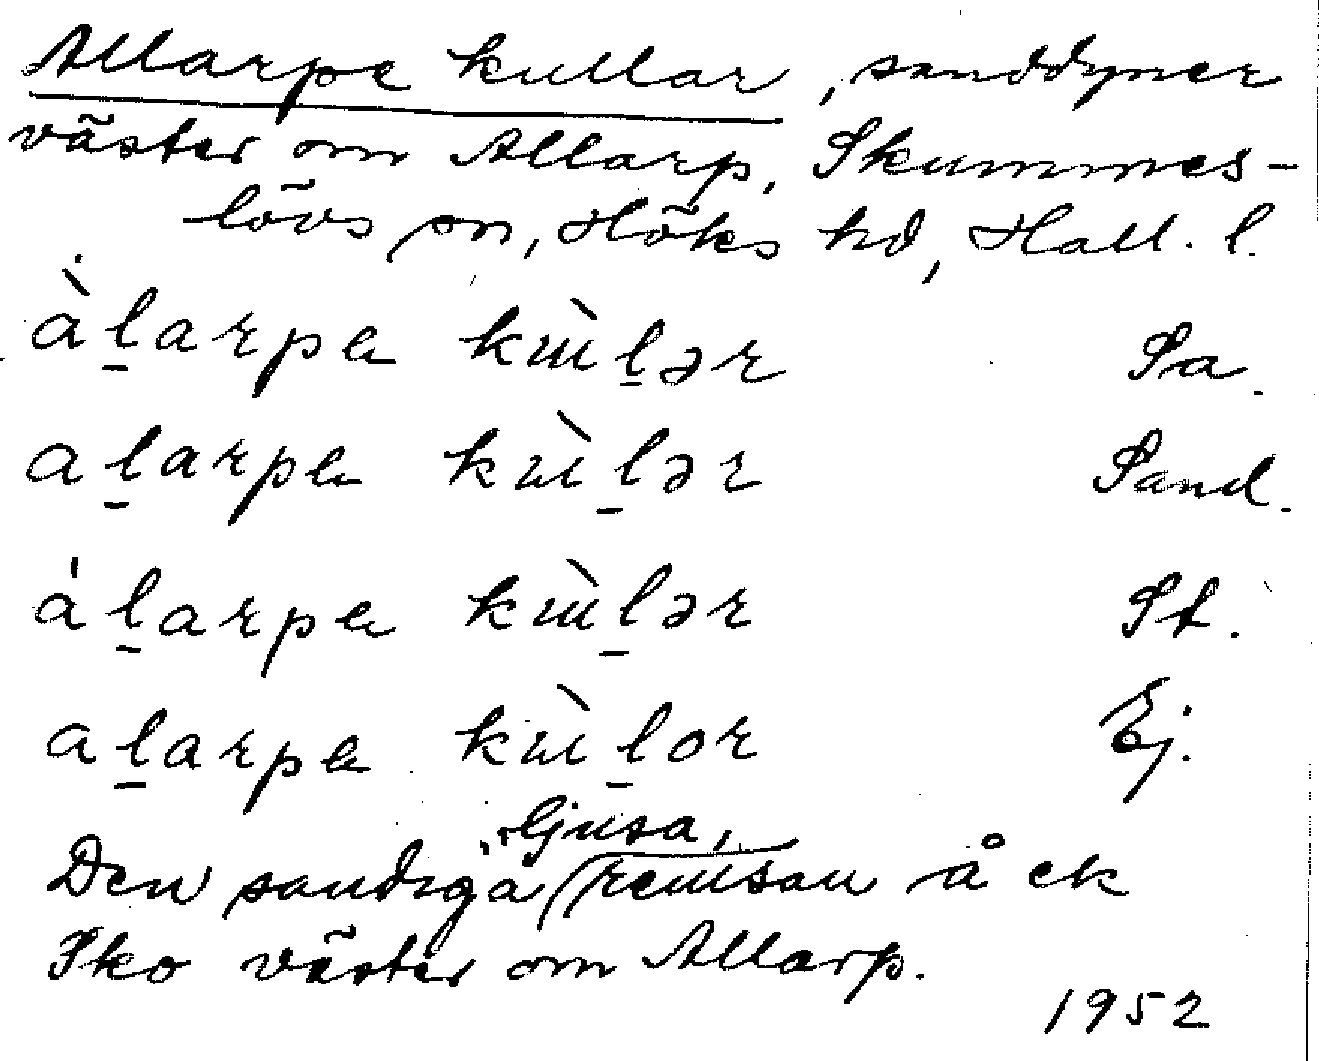 Allarpa kullar, sanddyner
väster om Allarp, Skummes-
lövs sn, Höks hd, Hall. l.
àḻarpa kɯ̀ḻər Sa.
aḻarpa kɯ̀ḻər Sand.
áḻarpa kɯ̀ḻər St.
aḻarpa kɯ̀ḻor Ej.
ljusa,
Den sandiga, remsan å ek
Sko väster om Allarp.
1952